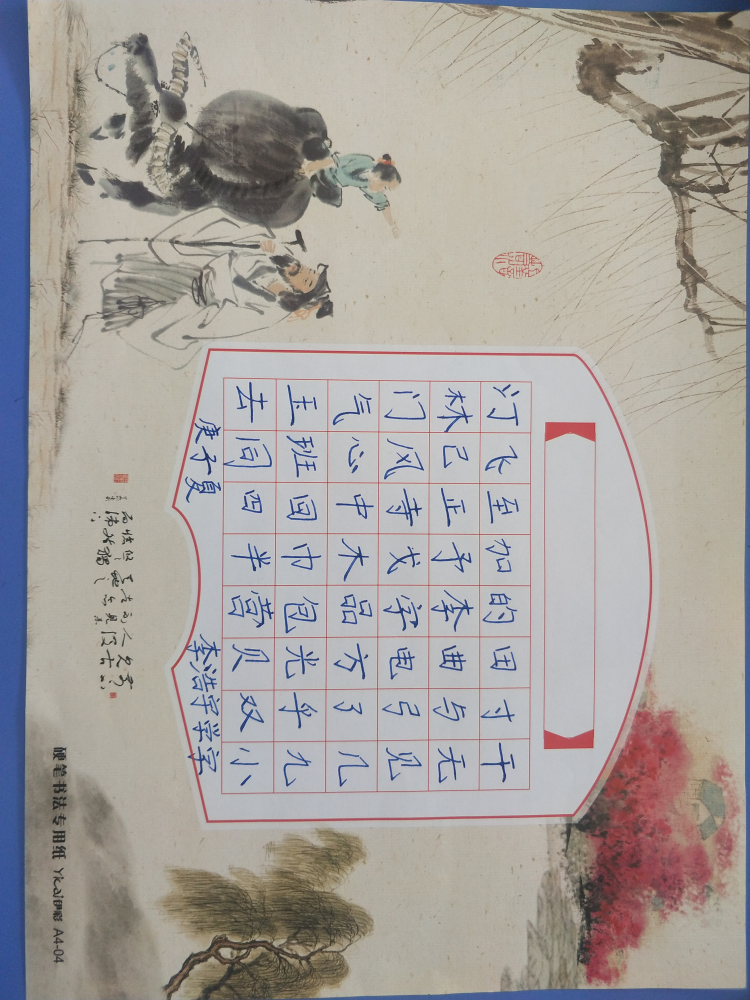 汀飞至加的田寸于
林己正予李曲与无
门风寺戈字电弓见
气心中木品方了几
玉班回巾包光乎九
去同四半营贝双小
庚子夏 李浩宇学字
硬笔书法专用纸 Yicai伊彩 A4-04